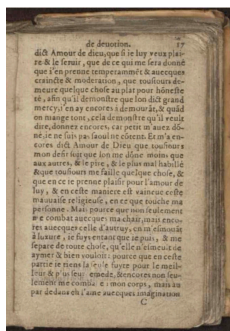 de deuotion. 17
dict Amour de dieu, que si ie luy veux plai-
re & le seruir, que de ce qui me sera donné
que i'en prenne temperamment & auecques
craincte & moderation, que tousiours de-
meure quelque chose au plat pour hõneste
té, afin qu'il demonstre que lon dict grand
mercy, i'en ay encores à demourãt, & quãd
on mange tout, cela demonstre qu'il veult
dire, donnez encores, car petit m'auez dõ-
né, ie ne suis pas saoul ne cõtent. Et m'a en-
cores dict Amour de Dieu que tousiours
mon desir soit que lon me dõne moins que
aux autres, & le pire, & le plus mal habillé
& que tousiours me faille quelque chose, &
que en ce ie prenne plaisir pour l'amour de
luy, & en ceste maniere est vaincue ceste
mauuaise religieuse, en ce que touche ma
personne. Mais pource que non seulement
ie combat auecques ma chair, mais enco-
res auecques celle d'autruy, en m'esmouãt
à luxure, ie fuys entant que ie puis, & me
separe de toute chose, qu'elle
aymer & bien vouloir: pource que en ceste
partie ie tiens la seule fuyte pour le meil-
leur & plus seur remede, & encores non seu-
lement me combat mon corps, mais au
par dedans de l'ame auecques imagination
C